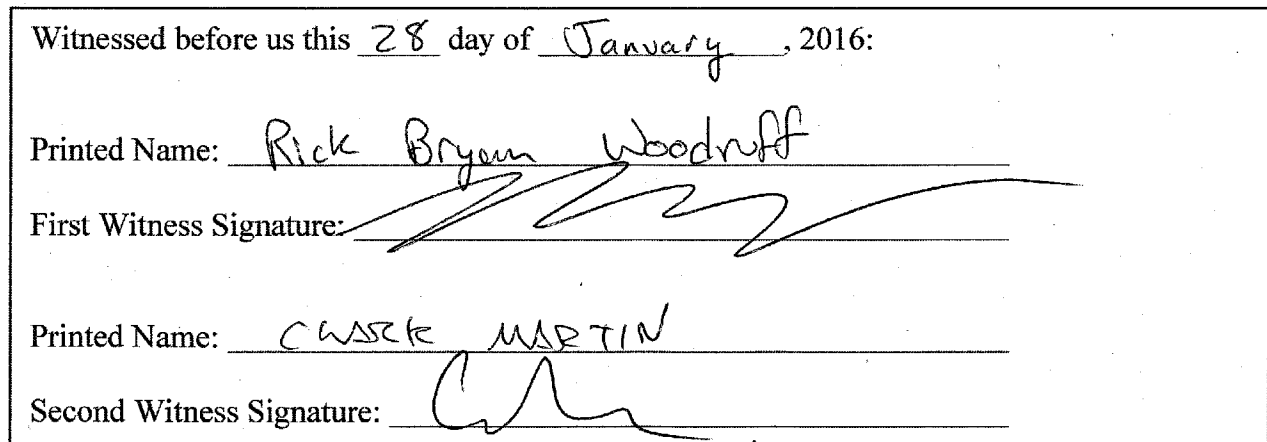 Witnessed before us this 28 day of January, 2016:
Printed Name: Rick Bryan Woodruff
First Witness Signature:
Printed Name: CLARK MARTIN
Second Witness Signature: